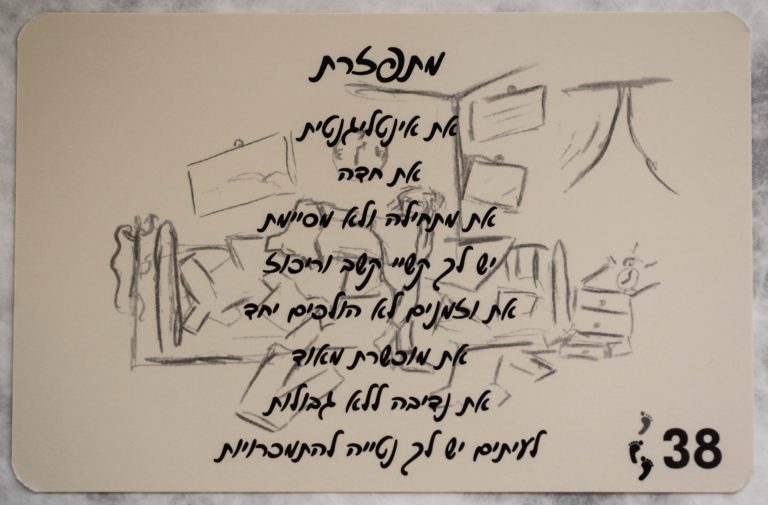 מתפזרת
את אינטליגנטית
את חדה
את מתחילה ולא מסיימת
יש לך קשיי קשב וריכוז
את וזמנים לא הולכים יחד
את מוכשרת מאוד
את נדיבה ללא גבולות
לעיתים יש לך נטייה להתמכרויות
38